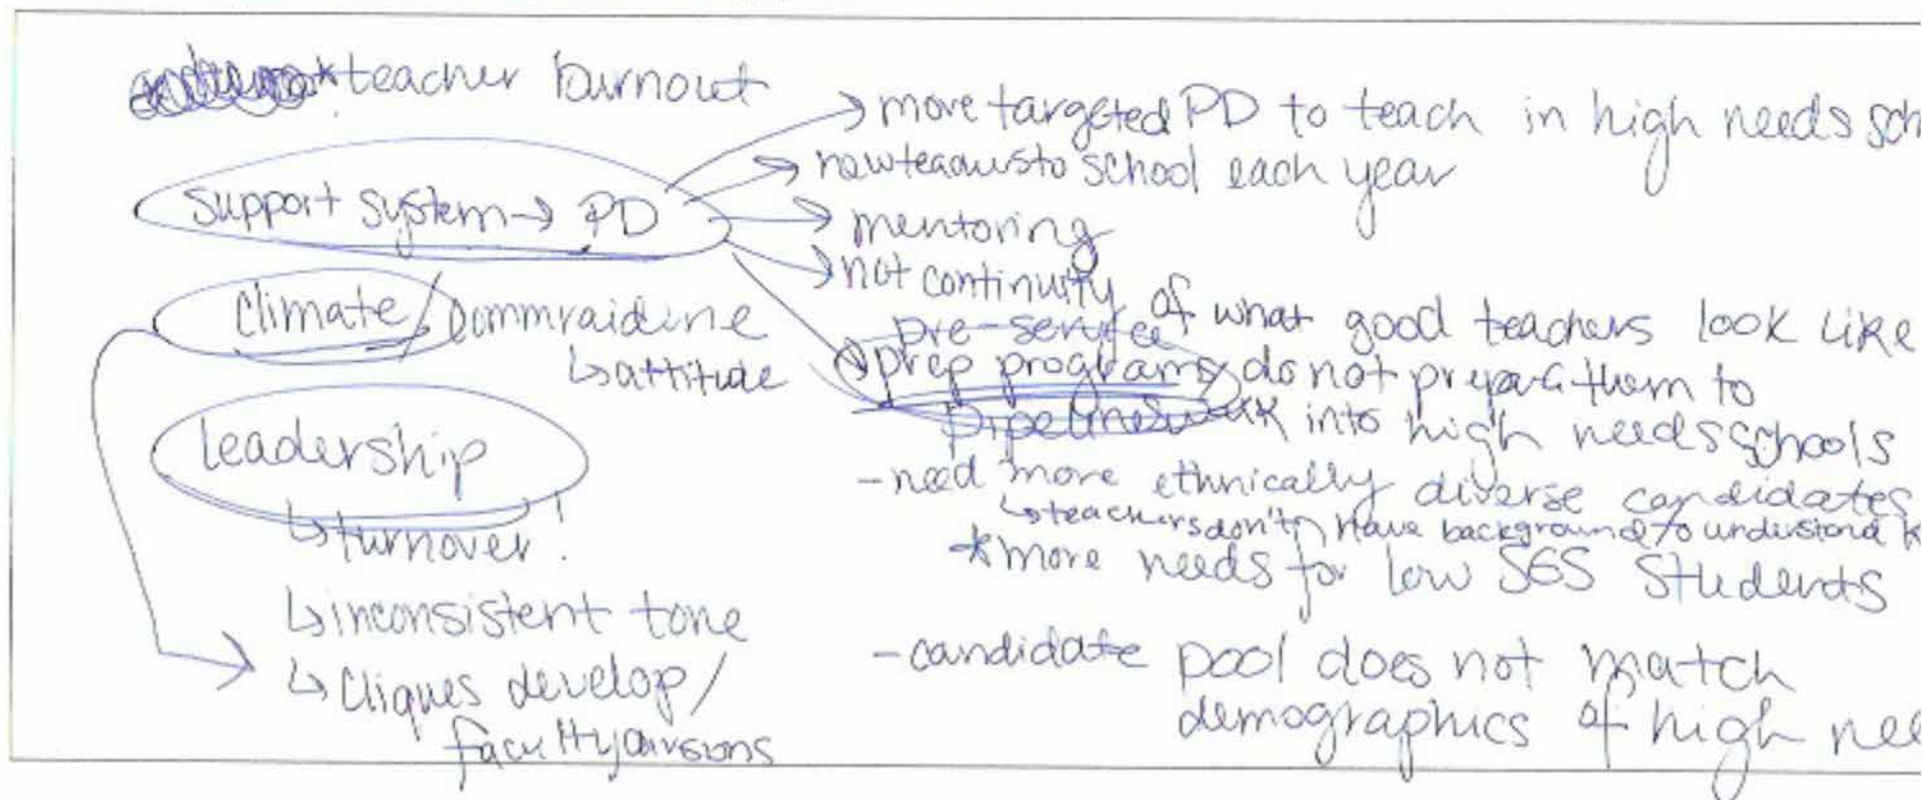 *teacher burnout
support system → PD
climate / cammraiderie
↳ attitude
leadership
↳ turnover!
↳ inconsistent tone
↳ cliques develop/
faculty divisions
→ more targeted PD to teach in high needs sch
→ new teachers to school each year
→ mentoring
→ not continuity of what good teachers look like
pre-service
→ prep programs do not prepare them to
pipelines walk into high needs schools
- need more ethnically diverse candidates
↳ teachers don't have background to understand k
* more needs for low SES students
- candidate pool does not match
demographics of high nee